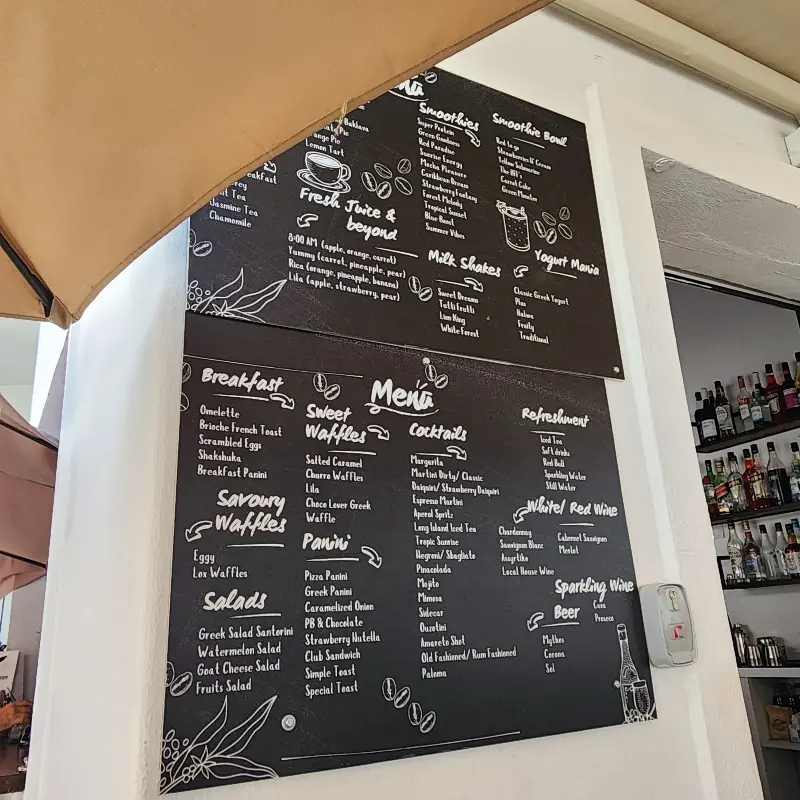 Baklava
Pie
Pie
Lemon Tart
Tea
Jasmine Tea
Chamomile
Fresh Juice &
beyond
8:00 AM (apple, orange, carrot)
Yummy (carrot, pineapple, pear)
Rica (orange, pineapple, banana)
Lila (apple, strawberry, pear)
Smoothies
Super Protein
Green Goodness
Red Paradise
Sunrise Energy
Mocha Pleasure
Caribbean Dream
Strawberry Fantasy
Forest Melody
Tropical Sunset
Blue Bowl
Summer Vibes
Milk Shakes
Sweet Dream
Tutti Frutti
Lion King
White Forest
Smoothie Bowl
Red to go
Strawberries & Cream
Yellow Submarine
The
Carrot Cake
Green Monster
Yogurt Mania
Classic Greek Yogurt
Plus
Halwa
Fruity
Traditional
Menu
Breakfast
Omelette
Brioche French Toast
Scrambled Eggs
Shakshuka
Breakfast Panini
Savoury
Waffles
Eggy
Lox Waffles
Salads
Greek Salad Santorini
Watermelon Salad
Goat Cheese Salad
Fruits Salad
Sweet
Waffles
Salted Caramel
Churro Waffles
Lila
Choco Lover Greek
Waffle
Panini
Pizza Panini
Greek Panini
Caramelized Onion
PB & Chocolate
Strawberry Nutella
Club Sandwich
Simple Toast
Special Toast
Cocktails
Margarita
Martini Dirty/ Classic
Daiquiri/ Strawberry Daiquiri
Espresso Martini
Aperol Spritz
Long Island Iced Tea
Tropic Sunrise
Negroni/ Sbagliato
Pinacolada
Mojito
Mimosa
Sidecar
Ouzotini
Amareto Shot
Old Fashioned/ Rum Fashioned
Paloma
Refreshment
Iced Tea
Soft drinks
Red Bull
Sparkling Water
Still Water
White/ Red Wine
Chardonnay
Sauvignon Blanc
Assyrtiko
Local House Wine
Cabernet Sauvignon
Merlot
Sparkling Wine
Cava
Proseco
Beer
Mythos
Corona
Sol